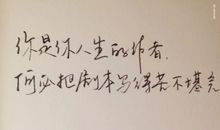 你是你人生的作者
何必把剧本写得苦不堪言